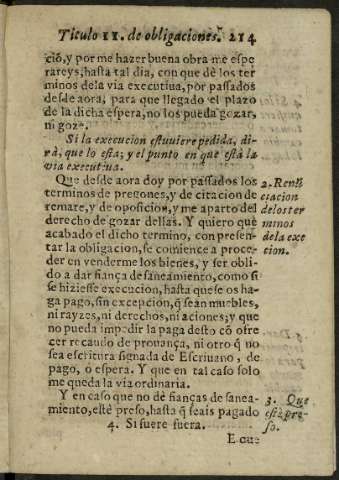 Titulo 11. de obligaciones. 214
ció, y por me hazer buena obra me espe
rareys, hasta tal dia, con que dè los ter
minos dela via executiua, por passados
desde aora, para que llegado el plazo
de la dicha espera, no los pueda gozar,
ni goze.
Si la execucion estuuiere pedida, di-
rà, que lo està; y el punto en que està la
via executiua.
Que desde aora doy por passados los
terminos de pregones, y de citacion de
remate, y de oposicion, y me aparto del
derecho de gozar dellas. Y quiero que
acabado el dicho termino, con presen-
tar la obligacion, se comience a proce-
der en venderme los bienes, y ser obli-
do a dar fiança de saneamiento, como si
se hiziesse execucion, hasta que se os ha-
ga pago, sin excepcion, q̃ seàn muebles,
ni rayzes, ni derechos, ni aciones; y que
no pueda impedir la paga desto cõ ofre
cer recaudo de prouança, ni otro q̃ no
sea escritura signada de Escriuano, de
pago, ò espera. Y que en tal caso solo
me queda la via ordinaria.
Y en caso que no dè fianças de sanea-
miento, estè preso, hasta q̃ seais pagado
4. Si fuere fuera.
E que
2. Renũ
ciacion
de los ter
minos
de la exe
cion.
3. Que
estè pre-
so.